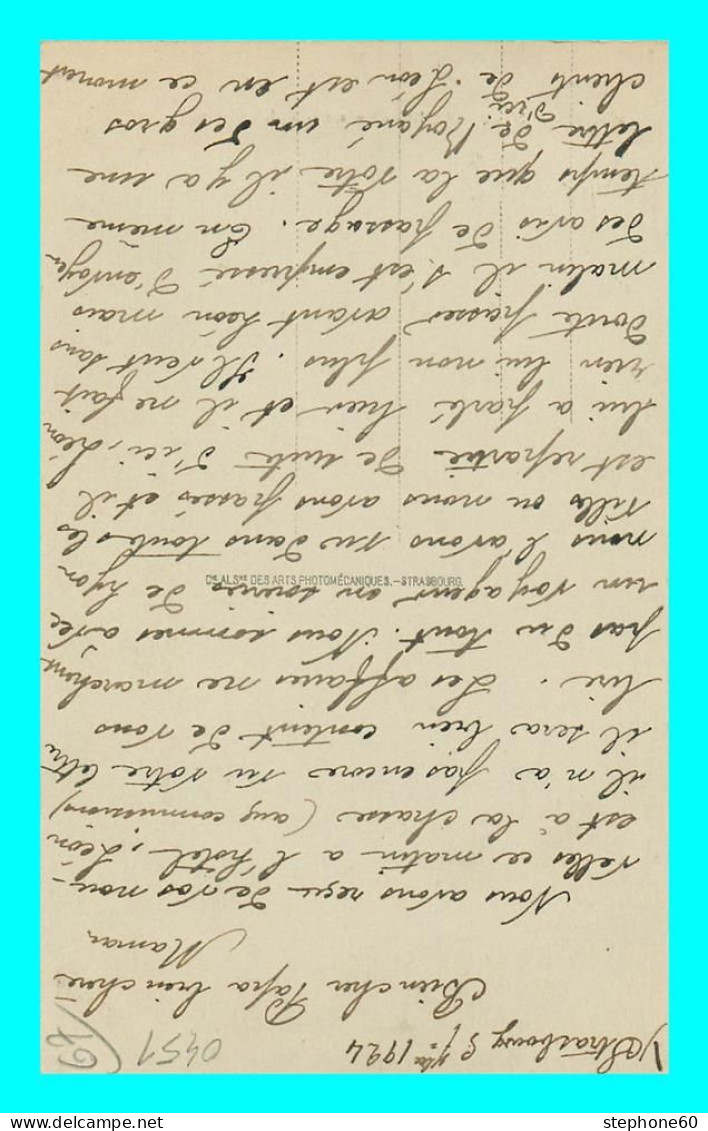 1) Strasbourg 5 7bre 1924
0451
Bien cher Papa bien chère
Maman
Nous avons reçu de vos nou-
velles ce matin a l'hôtel, Léon
est à la chasse (aux commissions)
il n'a pas encore vu votre lettre
il sera bien content de vous
lire. Les affaires ne marchent
pas du tout. Nous sommes avec
un voyageur en soieries de Lyon
nous l'avons vu dans toutes les
villes ou nous avons passés et il
est repartie de suite d'ici, Léon
lui a parlé hier et il ne fait
rien lui non plus. Il veut sans
doute passer avant Léon mais
malin il s'est empressé d'envoyer
des avis de passage. En même
temps que la votre il y a une
lettre de Royané un des gros
clients d'ici de Léon est en ce moment
Cie ALSne DES ARTS PHOTOMÉCANIQUES.—STRASBOURG.
stephone60